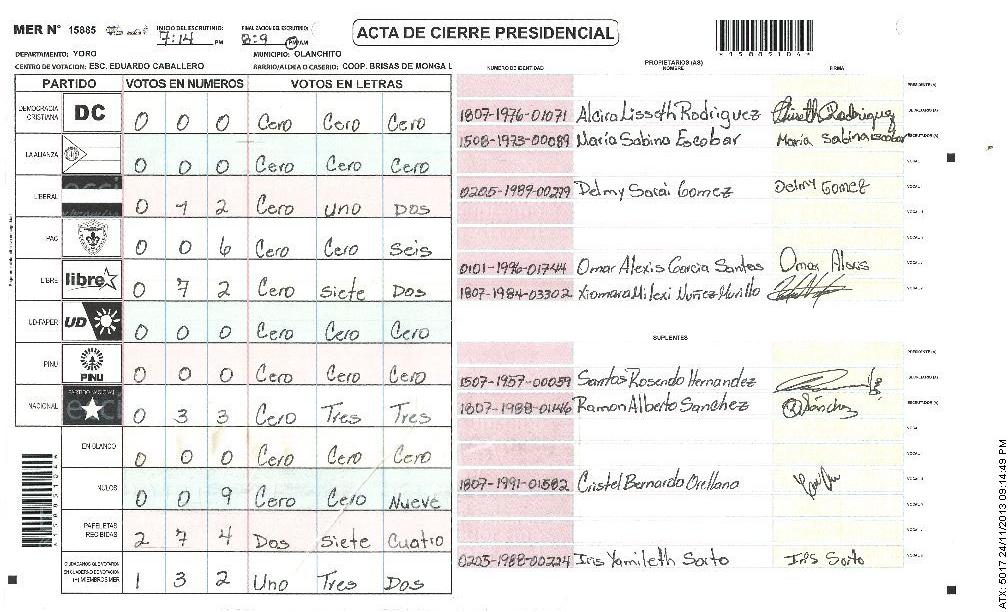 MER Nº 15885
INICIO DEL ESCRUTINIO: 7:14 PM
FINALIZACION DEL ESCRUTINIO: 8:9 PM
ACTA DE CIERRE PRESIDENCIAL
DEPARTAMENTO: YORO
MUNICIPIO: OLANCHITO
CENTRO DE VOTACION: ESC. EDUARDO CABALLERO
BARRIO/ALDEA O CASERIO: COOP. BRISAS DE MONGA L
PARTIDO VOTOS EN NUMEROS VOTOS EN LETRAS
DEMOCRACIA CRISTIANA DC 0 0 0 Cero Cero Cero
LA ALIANZA 0 0 0 Cero Cero Cero
LIBERAL 0 1 2 Cero uno Dos
PAC 0 0 6 Cero Cero Seis
LIBRE libre 0 7 2 Cero Siete Dos
UD-FAPER UD 0 0 0 Cero Cero Cero
PINU PINU 0 0 0 Cero Cero Cero
NACIONAL PARTIDO NACIONAL 0 3 3 Cero Tres Tres
EN BLANCO 0 0 0 Cero Cero Cero
NULOS 0 0 9 Cero Cero Nueve
PAPELETAS RECIBIDAS 2 7 4 Dos Siete Cuatro
CIUDADANOS QUE VOTARON EN CUADERNO DE VOTACION (+) MIEMBROS MER 1 3 2 Uno Tres Dos
*15885104*
PROPIETARIOS (AS)
NUMERO DE IDENTIDAD NOMBRE FIRMA
PRESIDENTE (A)
1807-1976-01071 Alcira Lisseth Rodriguez Lisseth Rodriguez SECRETARIO (A)
1508-1973-00089 Maria Sabina Escobar Maria Sabina Escobar ESCRUTADOR (A)
VOCAL I
0205-1989-00279 Delmy Sarai Gomez Delmy Gomez
0101-1996-01744 Omar Alexis Garcia Santos Omar Alexis
1807-1984-03302 Xiomara Milexi Nuñez Murillo
SUPLENTES
PRESIDENTE (A)
1507-1957-00059 Santos Rosendo Hernandez SECRETARIO (A)
1807-1988-01146 Ramon Alberto Sanchez Sánchez ESCRUTADOR (A)
1807-1991-01582 Cristel Bernardo Orellana
0205-1988-00224 Iris Yamileth Sorto Iris Sorto
ATX: 5017 24/11/2013 09:14:49 PM